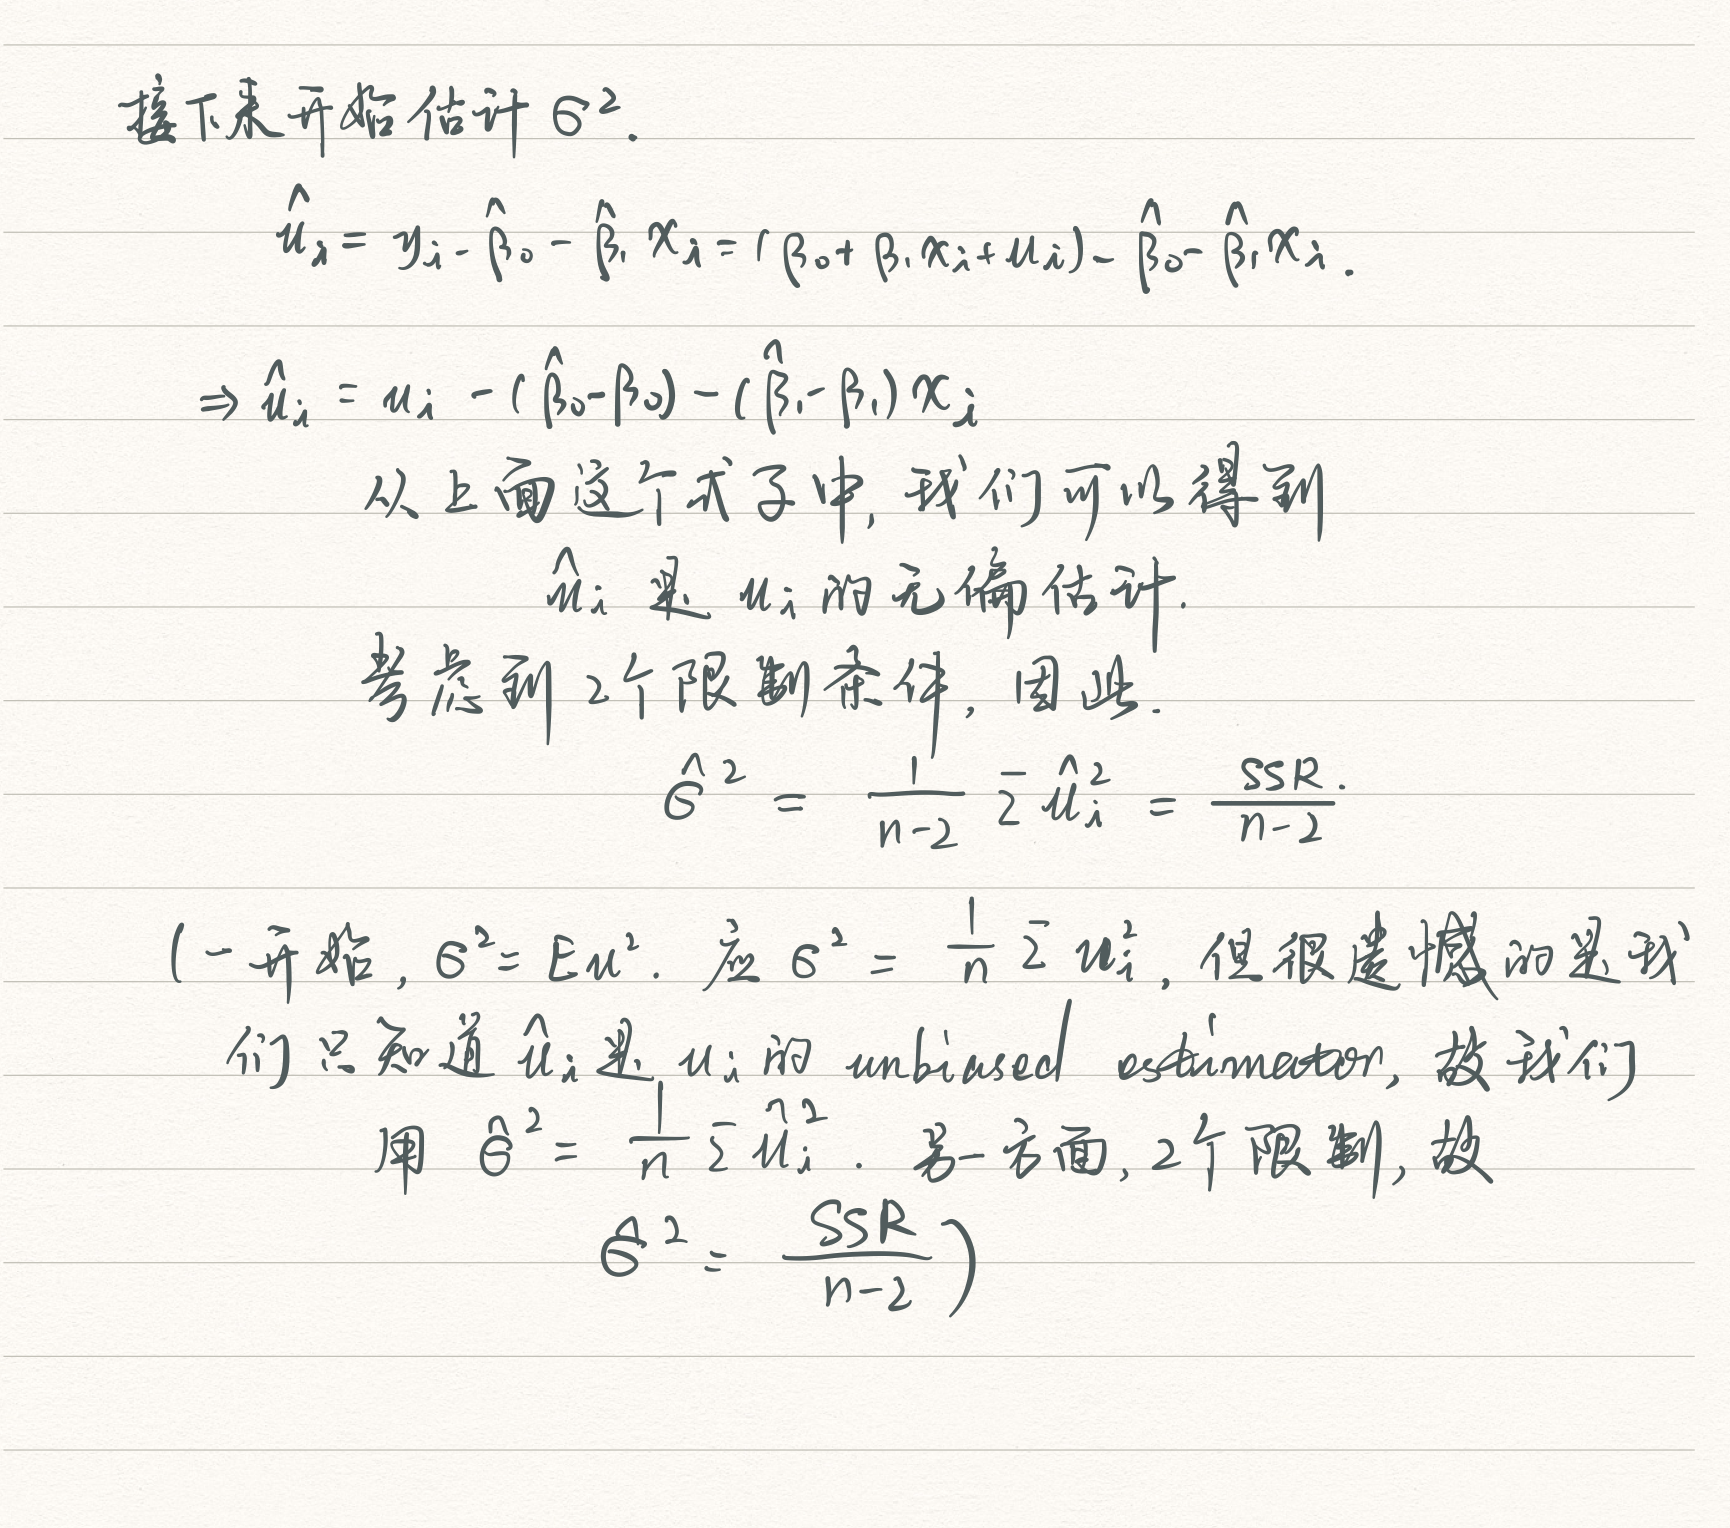 接下来开始估计 σ².
û_i = y_i - β̂₀ - β̂₁ x_i = (β₀ + β₁ x_i + u_i) - β̂₀ - β̂₁ x_i.
⇒ û_i = u_i - (β̂₀ - β₀) - (β̂₁ - β₁) x_i
从上面这个式子中, 我们可以得到
û_i 是 u_i 的无偏估计.
考虑到 2个限制条件, 因此.
σ̂² = 1/(n-2) Σ û_i² = SSR/(n-2).
(一开始, σ² = Eu². 应 σ² = 1/n Σ u_i², 但很遗憾的是我
们只知道 û_i 是 u_i 的 unbiased estimator, 故我们
用 σ̂² = 1/n Σ û_i². 另一方面, 2个限制, 故
σ̂² = SSR/(n-2))